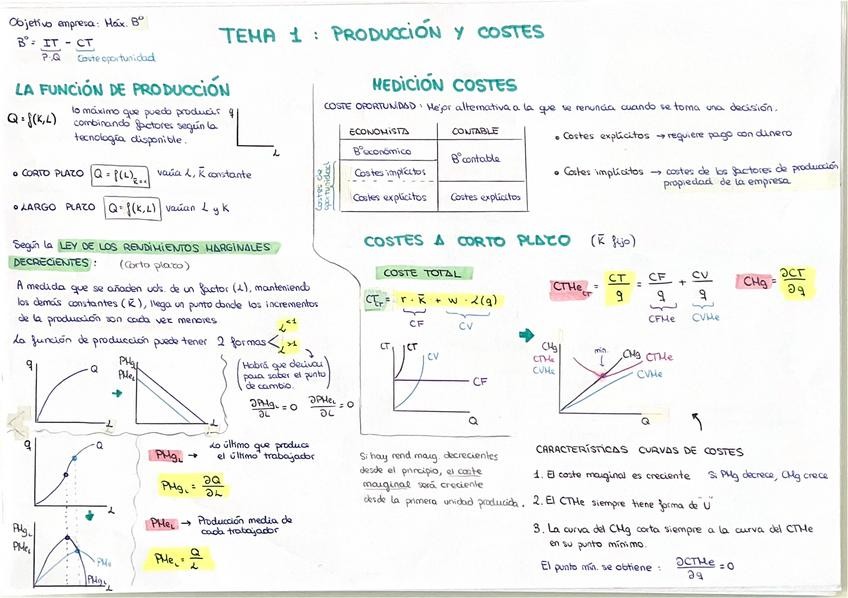 Objetivo empresa: Máx. Bº
Bº = IT - CT
P·Q Coste oportunidad
TEMA 1 : PRODUCCIÓN Y COSTES
LA FUNCIÓN DE PRODUCCIÓN
Q = f(K,L)
lo máximo que puedo producir
combinando factores según la
tecnología disponible.
q
L
• CORTO PLAZO Q = f(L) K̄=K varía L, K̄ constante
• LARGO PLAZO Q = f(K,L) varían L y K
Según la LEY DE LOS RENDIMIENTOS MARGINALES
DECRECIENTES : (Corto plazo)
A medida que se añaden uds. de un factor (L), manteniendo
los demás constantes (K̄), llega un punto donde los incrementos
de la producción son cada vez menores
La función de producción puede tener 2 formas
L <1
L >1
(Habrá que derivar
para saber el punto
de cambio.)
∂PMgL/∂L = 0 ∂PMeL/∂L = 0
q
Q
L
PMgL
PMeL
L
q
Q
L
PMgL
PMeL
PMe
PMgL
L
PMgL → Lo último que produce
el último trabajador
PMgL = ∂Q/∂L
PMeL → Producción media de
cada trabajador
PMeL = Q/L
MEDICIÓN COSTES
COSTE OPORTUNIDAD : Mejor alternativa a la que se renuncia cuando se toma una decisión.
ECONOMISTA CONTABLE
Bº económico Bº contable
Costes implícitos
Costes explícitos Costes explícitos
Costes de
oportunidad
• Costes explícitos → requiere pago con dinero
• Costes implícitos → costes de los factores de producción
propiedad de la empresa
COSTES A CORTO PLAZO (K̄ fijo)
COSTE TOTAL
= r · K̄ + w · L(q)
CF CV
CT
CT
CV
CF
Q
CTMe CT = CT/q = CF/q + CV/q
CFMe CVMe
CMg = ∂CT/∂q
CMg
CTMe
CVMe
mín.
CMg
CTMe
CVMe
Q
Si hay rend marg. decrecientes
desde el principio, el coste
marginal será creciente
desde la primera unidad producida.
CARACTERÍSTICAS CURVAS DE COSTES
1. El coste marginal es creciente Si PMg decrece, CMg crece
2. El CTMe siempre tiene forma de "U"
3. La curva del CMg corta siempre a la curva del CTMe
en su punto mínimo.
El punto mín. se obtiene : ∂CTMe/∂q = 0